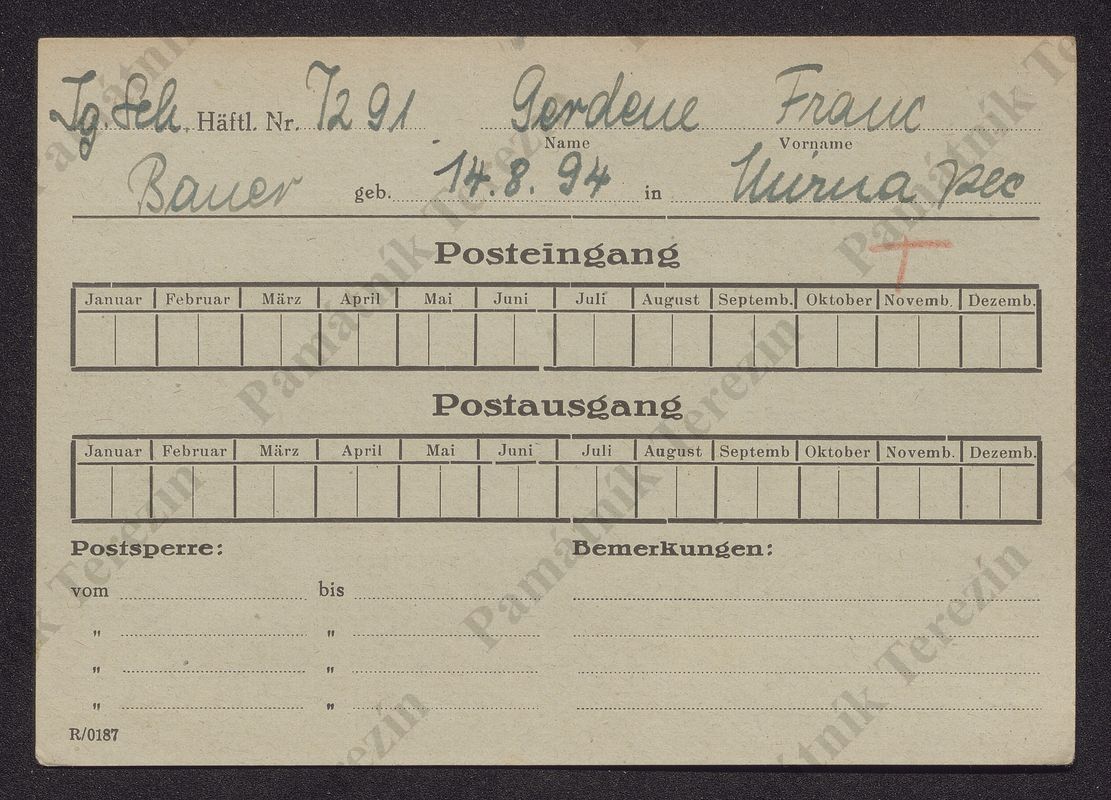 Jg. Sch. Häftl. Nr. 7291 Gerdene Franc
Name Vorname
Bauer geb. 14.8.94 in Mirna peč
T
Posteingang
Januar Februar März April Mai Juni Juli August Septemb. Oktober Novemb. Dezemb.
Postausgang
Januar Februar März April Mai Juni Juli August Septemb Oktober Novemb. Dezemb.
Postsperre: Bemerkungen:
vom bis
" "
" "
" "
R/0187
Památník Terezín